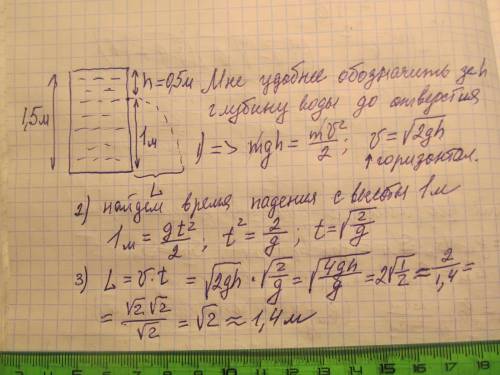 1,5м
h=0,5м
1м
L
Мне удобнее обозначить за h
глубину воды до отверстия
1) => mgh = mv²/2; v = √2gh
↑ горизонтал.
2) найдем время падения с высоты 1м
1м = gt²/2; t² = 2/g; t = √2/g
3) L = v·t = √2gh · √2/g = √4gh/g = 2√1/2 ≈ 2/1,4 =
= √2·√2/√2 = √2 ≈ 1,4м
0 1 2 3 4 5 6 7 8 9 10 11 12 13 14 15 16 17 18